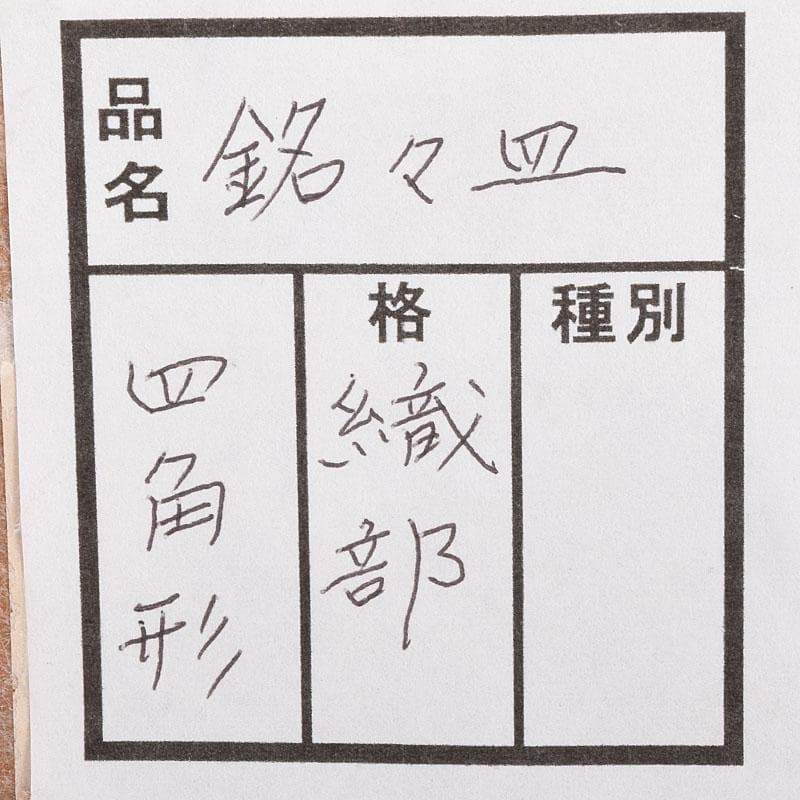 品名 銘々皿
四角形
格
織部
種別